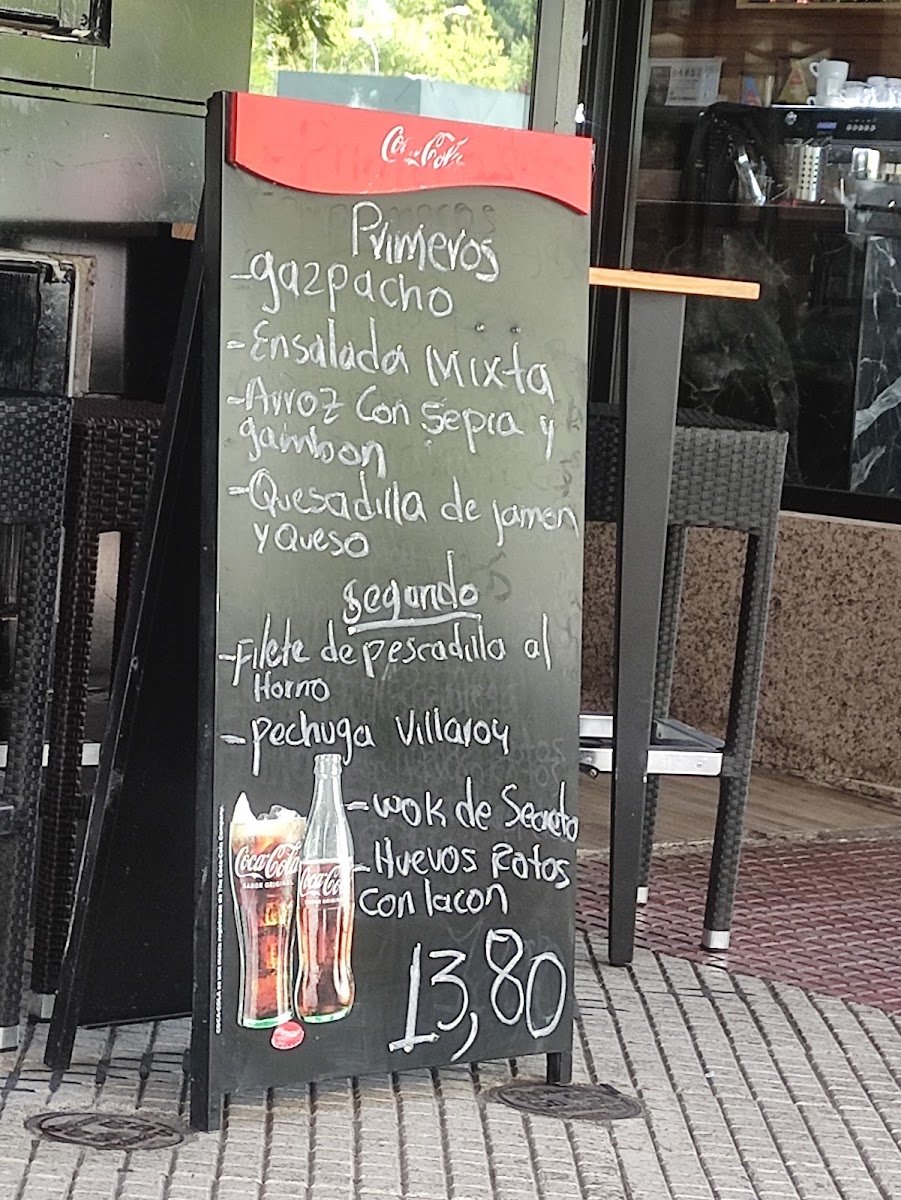 Coca-Cola
Primeros
-gazpacho
-Ensalada Mixta
-Arroz Con sepia y
gambon
-Quesadilla de jamon
y Queso
segundo
-Filete de pescadilla al
Horno
-pechuga Villaroy
-wok de Secreto
-Huevos Rotos
con lacon
13,80
Coca-Cola
SABOR ORIGINAL
Coca-Cola
SABOR ORIGINAL